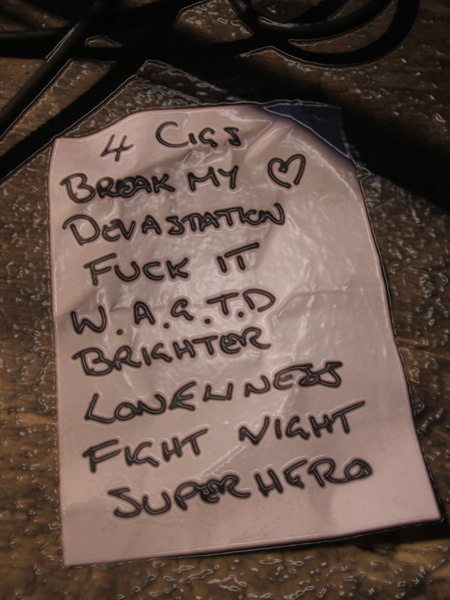 4 CIGS
BREAK MY ♡
DEVASTATION
FUCK IT
W.A.G.T.D
BRIGHTER
LONELINESS
FIGHT NIGHT
SUPERHERO